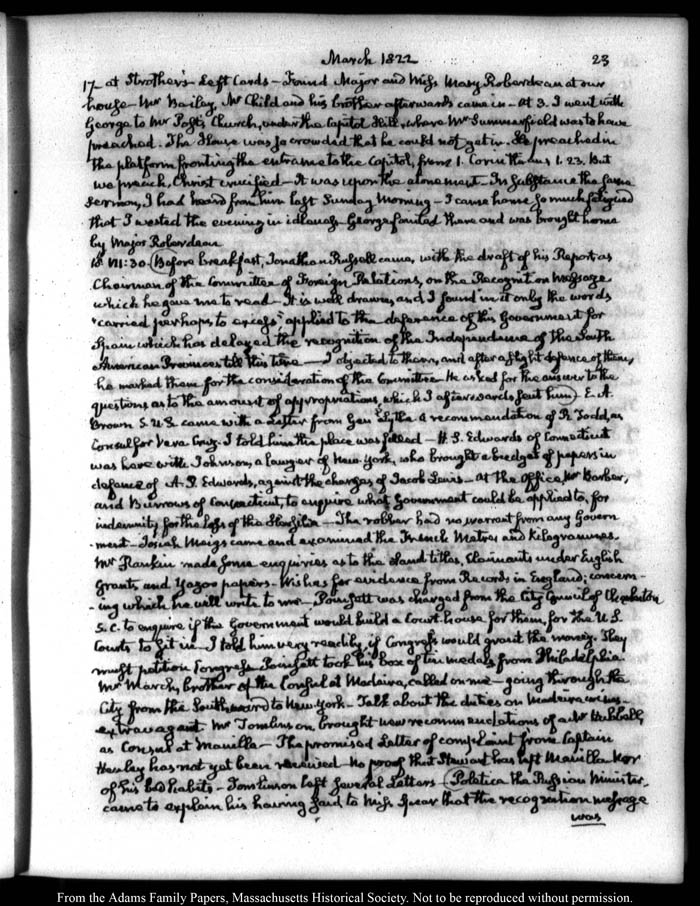 March 1822 23
17 at Strother's Left Cards – Found Major and Miss Mary Roberdeau at our
house – Mr Bailey, Mr Child and his brother afterwards came in – At 3. I went with
George to Mr Post's Church, under the Capitol Hill, where Mr Summerfield was to have
preached. The House was so crowded that he could not get in. He preached in
the platform fronting the entrance to the Capitol, from 1. Corinthians 1. 23. But
we preach, Christ crucified – It was upon the atonement – In substance the same
sermon, I had heard from him last Sunday Morning – I came home so much fatigued
that I wasted the evening in idleness – George fainted there and was brought home
by Major Roberdeau
18. VII:30. (Before breakfast, Jonathan Russell came, with the draft of his Report as
Chairman of the Committee of Foreign Relations, on the Recognition Message
which he gave me to read – It is well drawn, and I found in it only the words
"carried perhaps to excess" applied to the deference of this Government for
Spain which has delayed the recognition of the Independence of the South
American Provinces till this time – I objected to them, and after a slight defence of them,
he marked them for the consideration of the Committee – He asked for the answer to the
questions as to the amount of appropriations, which I afterwards sent him) E. A.
Brown S. U. S. came with a letter from Genl Lytle a recommendation of R. Todd, as
Consul for Vera Cruz. I told him the place was filled – H. S. Edwards of Connecticut
was here with Johnson, a lawyer of New-York, who brought a budget of papers in
defence of A. P. Edwards, against the charges of Jacob Lewis – At the Office Mr Barber,
and Burrows of Connecticut, to enquire what Government could be applied to, for
indemnity for the loss of the – The robber had no warrant from any Govern
ment – Josiah Meigs came and examined the French Metres and Kilogrammes.
Mr Rankin made some enquiries as to the land titles, Claimants under English
Grants and Yazoo papers – Wishes for evidence from Records in England; concern-
-ing which he will write to me – Poinsett was charged from the City Council of Charleston
S. C. to enquire if the Government would build a Court house for them, for the U. S.
Courts to sit in – I told him very readily, if Congress would grant the money. They
must petition Congress – Poinsett took his box of tin medals from Philadelphia.
Mr March, brother of the Consul at Madeira, called on me – going through the
City from the Southward to New-York – Talk about the duties on Madeira wines –
extravagant. Mr Tomlinson, brought new recommendations of a Mr Hubbell,
as Consul at Manilla – The promised Letter of complaint from Captain
Henley has not yet been received – No proof that Stewart has left Manilla Nor
of his bad habits – Tomlinson left several Letters (Poletica the Russian Minister,
came to explain his having said to Miss Spear that the recognition message
was
From the Adams Family Papers, Massachusetts Historical Society. Not to be reproduced without permission.